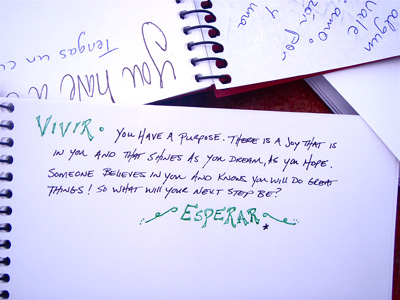 algun
vale
amo.
zón por
y una
you have a
Tengas un
VIVIR. YOU HAVE A PURPOSE. THERE IS A JOY THAT IS
IN YOU AND THAT SHINES AS YOU DREAM, AS YOU HOPE.
SOMEONE BELIEVES IN YOU AND KNOWS YOU WILL DO GREAT
THINGS! SO WHAT WILL YOUR NEXT STEP BE?
ESPERAR